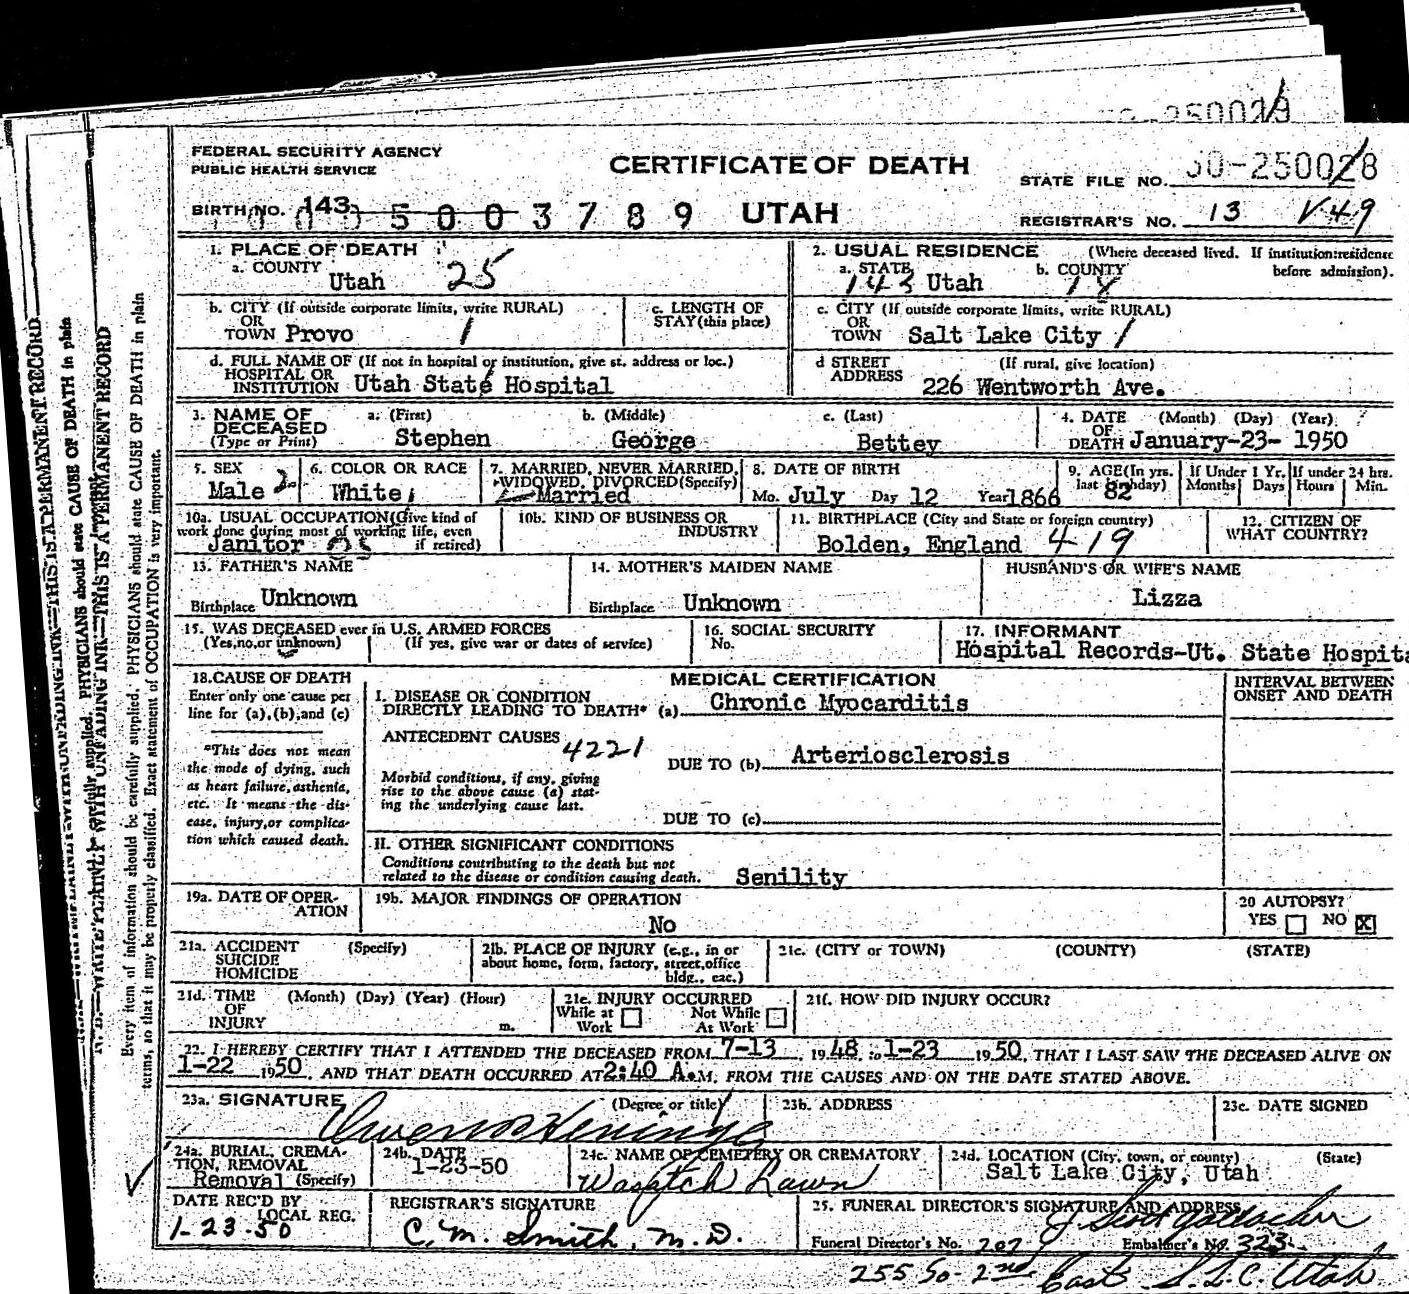 FEDERAL SECURITY AGENCY
PUBLIC HEALTH SERVICE
CERTIFICATE OF DEATH
UTAH
STATE FILE NO. 50-250028
BIRTH NO. 143 5003789
REGISTRAR'S NO. 13 V49
1. PLACE OF DEATH
a. COUNTY Utah 25
2. USUAL RESIDENCE (Where deceased lived. If institution:residence before admission).
a. STATE 143 Utah b. COUNTY 18
b. CITY (If outside corporate limits, write RURAL)
OR
TOWN Provo 1
c. LENGTH OF
STAY (this place)
c. CITY (If outside corporate limits, write RURAL)
OR
TOWN Salt Lake City 1
d. FULL NAME OF (If not in hospital or institution, give st. address or loc.)
HOSPITAL OR
INSTITUTION Utah State Hospital
d STREET (If rural, give location)
ADDRESS 226 Wentworth Ave.
3. NAME OF
DECEASED
(Type or Print)
a. (First) Stephen
b. (Middle) George
c. (Last) Bettey
4. DATE (Month) (Day) (Year)
OF
DEATH January-23- 1950
5. SEX
Male 2
6. COLOR OR RACE
White 1
7. MARRIED, NEVER MARRIED,
WIDOWED, DIVORCED (Specify)
Married
8. DATE OF BIRTH
Mo. July Day 12 Year 1866
9. AGE (In yrs.
last birthday) 82
If Under 1 Yr.
Months Days
If under 24 hrs.
Hours Min.
10a. USUAL OCCUPATION (Give kind of
work done during most of working life, even
if retired)
Janitor
10b. KIND OF BUSINESS OR
INDUSTRY
11. BIRTHPLACE (City and State or foreign country)
Bolden, England 419
12. CITIZEN OF
WHAT COUNTRY?
13. FATHER'S NAME
Birthplace Unknown
14. MOTHER'S MAIDEN NAME
Birthplace Unknown
HUSBAND'S OR WIFE'S NAME
Lizza
15. WAS DECEASED ever in U.S. ARMED FORCES
(Yes,no,or unknown) (If yes, give war or dates of service)
16. SOCIAL SECURITY
No.
17. INFORMANT
Hospital Records-Ut. State Hospita
18. CAUSE OF DEATH
Enter only one cause per
line for (a),(b),and (c)
*This does not mean
the mode of dying, such
as heart failure, asthenia,
etc. It means the dis-
ease, injury,or complica-
tion which caused death.
MEDICAL CERTIFICATION
I. DISEASE OR CONDITION
DIRECTLY LEADING TO DEATH* (a) Chronic Myocarditis
ANTECEDENT CAUSES 4221
DUE TO (b) Arteriosclerosis
Morbid conditions, if any, giving
rise to the above cause (a) stat-
ing the underlying cause last.
DUE TO (c)
II. OTHER SIGNIFICANT CONDITIONS
Conditions contributing to the death but not
related to the disease or condition causing death. Senility
INTERVAL BETWEEN
ONSET AND DEATH
19a. DATE OF OPER-
ATION
19b. MAJOR FINDINGS OF OPERATION
No
20 AUTOPSY?
YES NO X
21a. ACCIDENT (Specify)
SUICIDE
HOMICIDE
21b. PLACE OF INJURY (e.g., in or
about home, form, factory, street,office
bldg., eac.)
21c. (CITY or TOWN) (COUNTY) (STATE)
21d. TIME (Month) (Day) (Year) (Hour)
OF
INJURY m.
21e. INJURY OCCURRED
While at
Work
Not While
At Work
21f. HOW DID INJURY OCCUR?
22. I HEREBY CERTIFY THAT I ATTENDED THE DECEASED FROM 7-13 1948, to 1-23 1950, THAT I LAST SAW THE DECEASED ALIVE ON
1-22 1950, AND THAT DEATH OCCURRED AT 2:40 A.M. FROM THE CAUSES AND ON THE DATE STATED ABOVE.
23a. SIGNATURE (Degree or title)
23b. ADDRESS
23c. DATE SIGNED
24a. BURIAL, CREMA-
TION, REMOVAL
Removal (Specify)
24b. DATE
1-23-50
24c. NAME OF CEMETERY OR CREMATORY
Wasatch Lawn
24d. LOCATION (City, town, or county) (State)
Salt Lake City, Utah
DATE REC'D BY
LOCAL REG.
1-23-50
REGISTRAR'S SIGNATURE
C. M. Smith, M. D.
25. FUNERAL DIRECTOR'S SIGNATURE AND ADDRESS
Funeral Director's No. 207 Embalmer's No. 323
255 So. 2nd East S.L.C. Utah
N. B.—WRITE PLAINLY WITH UNFADING INK—THIS IS A PERMANENT RECORD
Every item of information should be carefully supplied. PHYSICIANS should state CAUSE OF DEATH in plain
terms, so that it may be properly classified. Exact statement of OCCUPATION is very important.